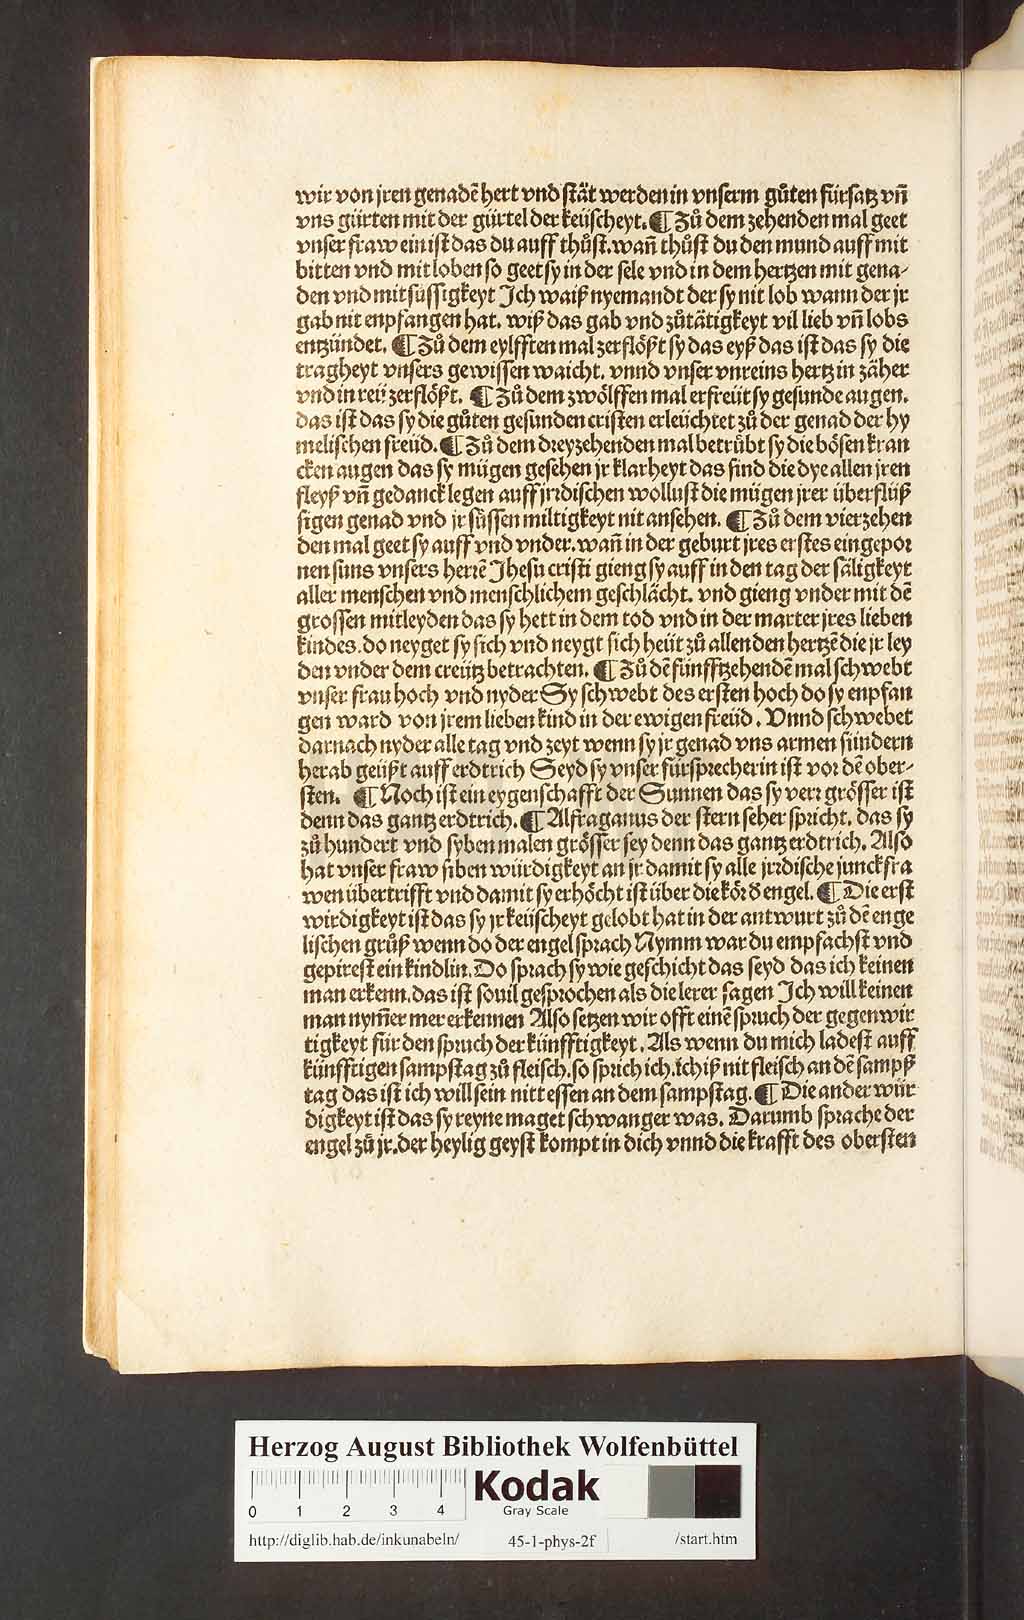 wir von jren genadē hert vnd stät werden in vnserm gůten fürsatz vn̄
vns gürten mit der gürtel der keüscheyt. ¶ Zů dem zehenden mal geet
vnser fraw ein ist das du auff thůst. wan̄ thůst du den mund auff mit
bitten vnd mit loben so geet sy in der sele vnd in dem hertzen mit gena-
den vnd mit süssigkeyt Ich waiß nyemandt der sy nit lob wann der jr
gab nit enpfangen hat. wiß das gab vnd zůtätigkeyt vil lieb vn̄ lobs
entzündet. ¶ Zů dem eylfften mal zerflößt sy das eyß das ist das sy die
tragheyt vnsers gewissen waicht. vnnd vnser vnreins hertz in zäher
vnd in reü zerflößt. ¶ Zů dem zwölffen mal erfreüt sy gesunde augen.
das ist das sy die gůten gesunden cristen erleüchtet zů der genad der hy
melischen freüd. ¶ Zů dem dreyzehenden mal betrůbt sy die bösen kran
cken augen das sy mügen gesehen jr klarheyt das sind die dye allen jren
fleyß vn̄ gedanck legen auff jrdischen wollust die mügen jrer überflüß
sigen genad vnd jr süssen miltigkeyt nit ansehen. ¶ Zů dem vierzehen
den mal geet sy auff vnd vnder. wan̄ in der geburt jres erstes eingepor
nen suns vnsers herrē Jhesu cristi gieng sy auff in den tag der säligkeyt
aller menschen vnd menschlichem geschlächt. vnd gieng vnder mit dē
grossen mitleyden das sy hett in dem tod vnd in der marter jres lieben
kindes. do neyget sy sich vnd neygt sich heüt zů allen den hertzē die jr ley
den vnder dem creütz betrachten. ¶ Zů dē fünfftzehendē mal schwebt
vnser frau hoch vnd nyder Sy schwebt des ersten hoch do sy enpfan
gen ward von jrem lieben kind in der ewigen freüd. Vnnd schwebet
darnach nyder alle tag vnd zeyt wenn sy jr genad vns armen sündern
herab geüßt auff erdtrich Seyd sy vnser fürsprecherin ist vor dē ober-
sten. ¶ Noch ist ein eygenschafft der Sunnen das sy verr grösser ist
denn das gantz erdtrich. ¶ Alfraganus der stern seher spricht. das sy
zů hundert vnd syben malen grösser sey denn das gantz erdtrich. Also
hat vnser fraw siben würdigkeyt an jr damit sy alle jrdische junckfra
wen übertrifft vnd damit sy erhöcht ist über die kör d̄ engel. ¶ Die erst
wirdigkeyt ist das sy jr keüscheyt gelobt hat in der antwurt zů dē enge
lischen grůß wenn do der engel sprach Nymm war du empfachst vnd
gepirest ein kindlin. Do sprach sy wie geschicht das seyd das ich keinen
man erkenn. das ist souil gesprochen als die lerer sagen Ich will keinen
man nym̄er mer erkennen Also setzen wir offt einē spruch der gegenwir
tigkeyt für den spruch der künfftigkeyt. Als wenn du mich ladest auff
künfftigen sampstag zů fleisch. so sprich ich. ich iß nit fleisch an dē sampß
tag das ist ich will sein nitt essen an dem sampstag. ¶ Die ander wür
digkeyt ist das sy reyne maget schwanger was. Darumb sprache der
engel zů jr. der heylig geyst kompt in dich vnnd die krafft des obersten
Herzog August Bibliothek Wolfenbüttel
0 1 2 3 4
Kodak
Gray Scale
http://diglib.hab.de/inkunabeln/ 45-1-phys-2f /start.htm